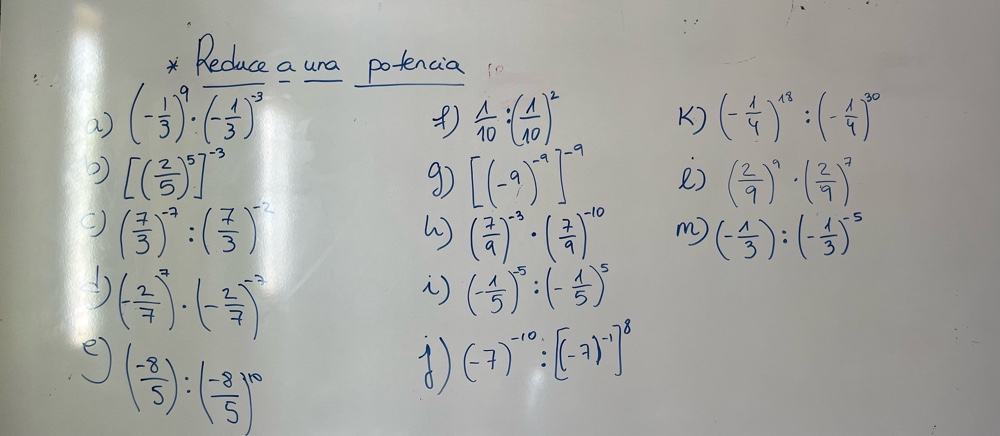 * Reduce a una potencia
a) (-1/3)^9 · (-1/3)^-3
b) [(2/5)^5]^-3
c) (7/3)^-7 : (7/3)^-2
d) (-2/7)^7 · (-2/7)^-7
e) (-8/5) : (-8/5)^10
f) 1/10 : (1/10)^2
g) [(-9)^-9]^-9
h) (7/9)^-3 · (7/9)^-10
i) (-1/5)^-5 : (-1/5)^5
j) (-7)^-10 : [(-7)^-1]^8
K) (-1/4)^18 : (-1/4)^30
l) (2/9)^9 · (2/9)^7
m) (-1/3) : (-1/3)^-5